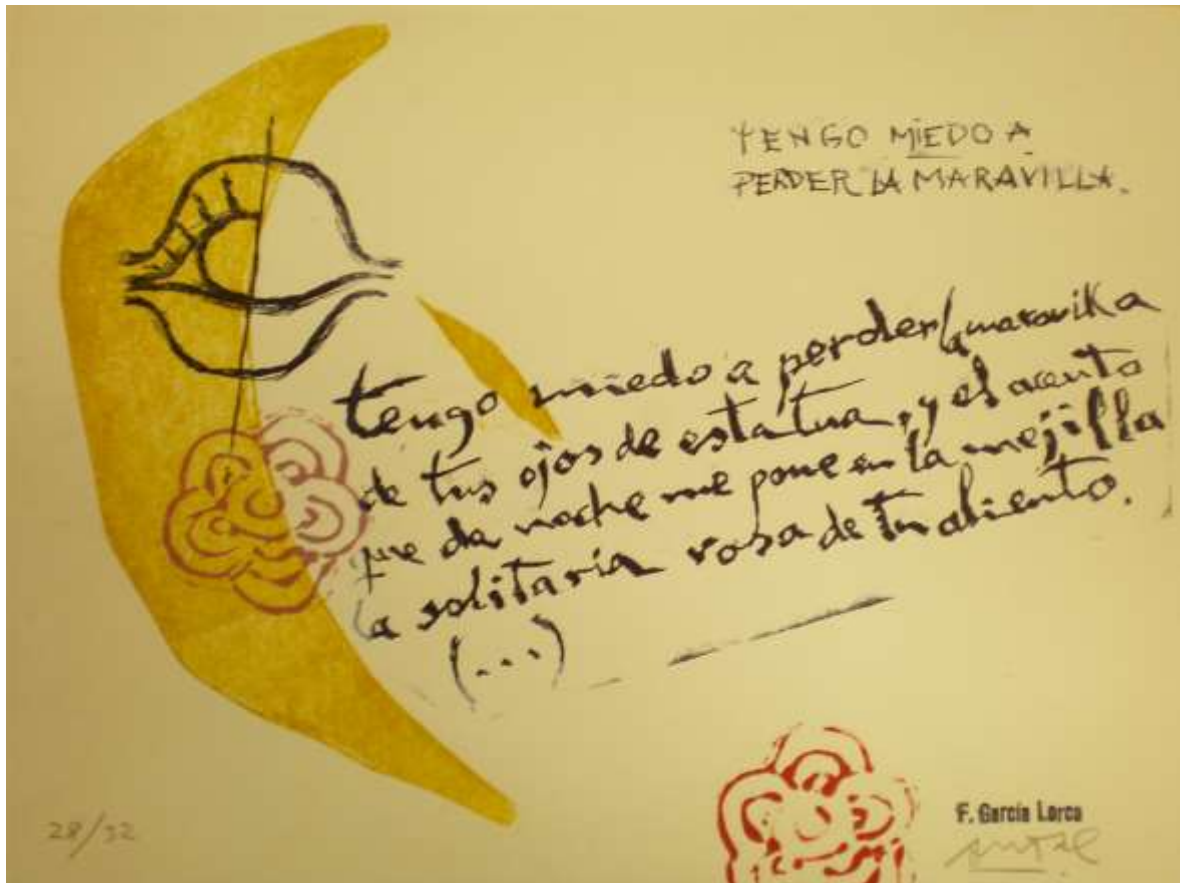 TENGO MIEDO A
PERDER LA MARAVILLA.
tengo miedo a perder la maravilla
de tus ojos de estatua, y el acento
que da noche me pone en la mejilla
la solitaria rosa de tu aliento.
(...)
28/32
F. García Lorca